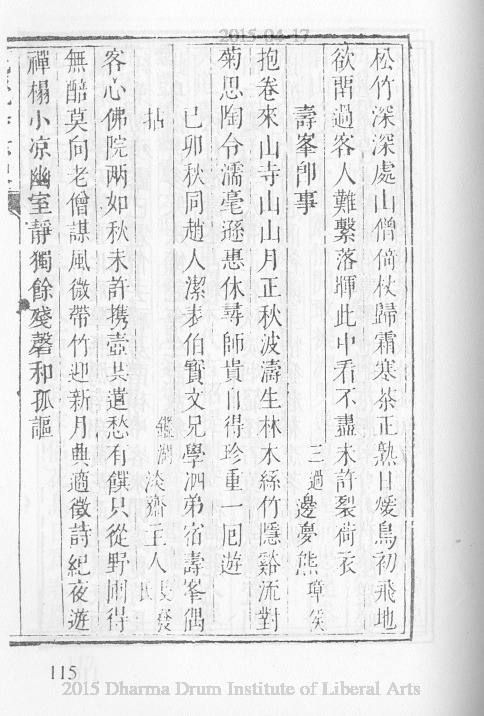 2015-04-17
松竹深深處山僧倚杖歸霜寒茶正熟日煖鳥初飛地
欲留過客人難繫落暉此中看不盡未許裂荷衣
壽峯卽事 三過邊夢熊璋矦
抱卷來山寺山山月正秋波濤生林木絲竹隱谿流對
菊思陶令濡毫遜惠休尋師貴自得珍重一囘遊
己卯秋同趙人潔表伯寳文兄學泗弟宿壽峯偶
拈 鑑湖淡齋主人
客心佛院两如秋未許携壺共遣愁有饌只從野圃得
無醅莫向老僧謀風微帶竹迎新月興適徵詩紀夜遊
禪榻小凉幽室靜獨餘殘磬和孤謳
115
2015 Dharma Drum Institute of Liberal Arts